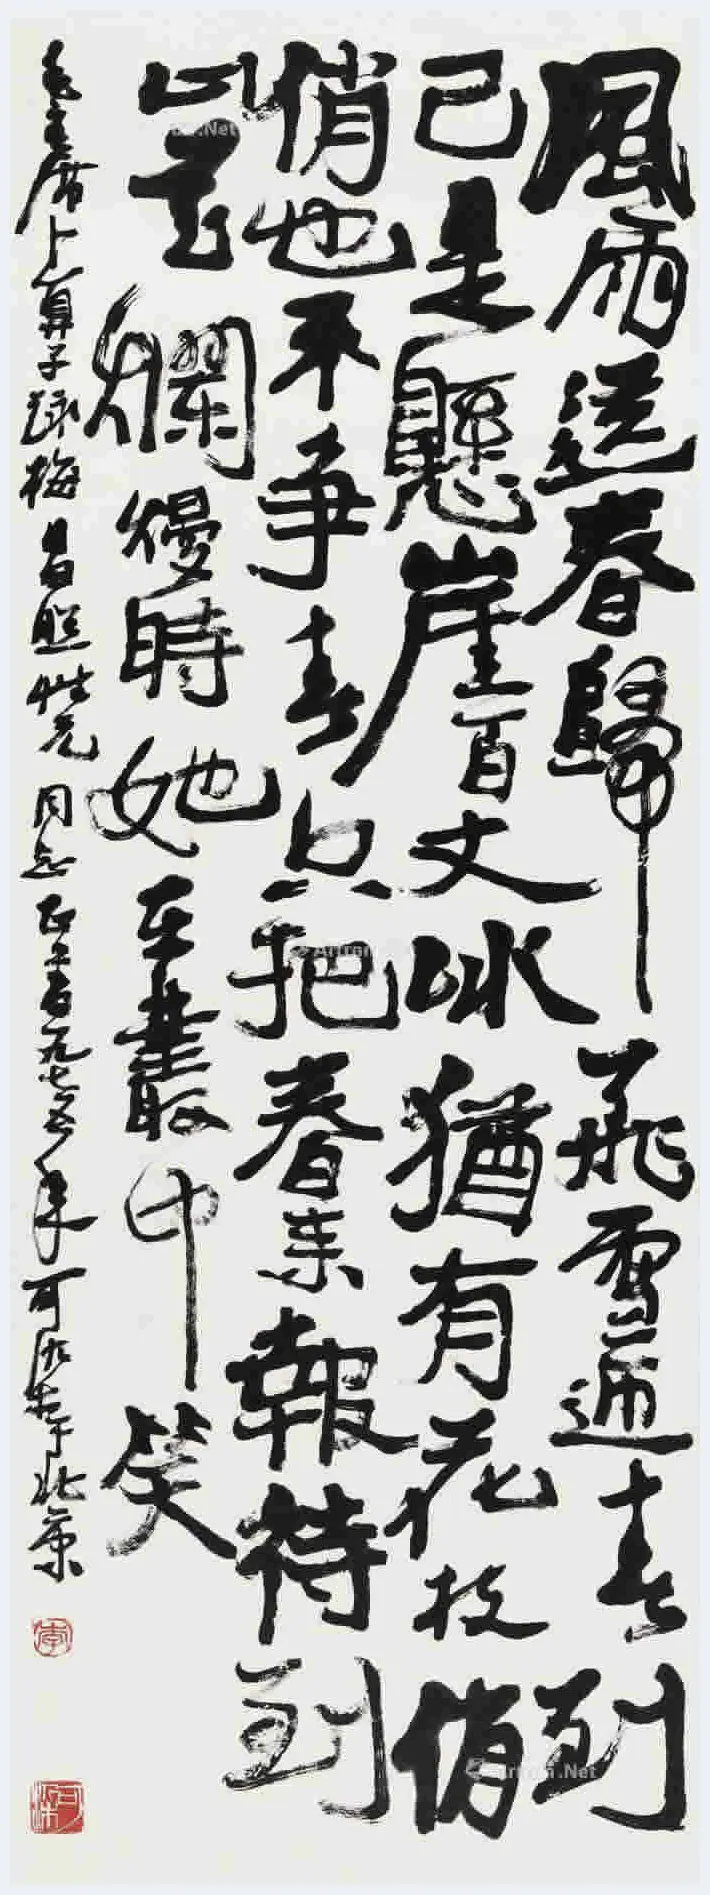 風雨送春歸飛雪迎春到
已是懸崖百丈冰猶有花枝俏
俏也不争春只把春来報待到
山花爛熳時她在叢中笑
毛主席卜算子詠梅 昌照性元同志正之一九七五年可染於北京
李
可染
Artron.Net